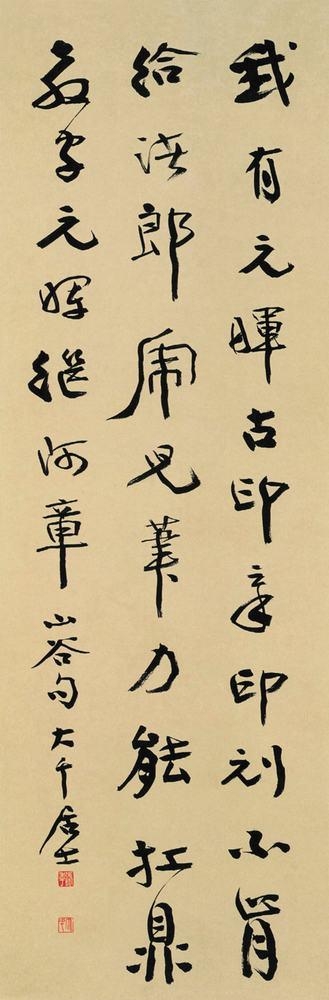 我有元暉古印章印刓不肯
給諸郎虎兒筆力能扛鼎
教字元暉繼阿章山谷句大千居士